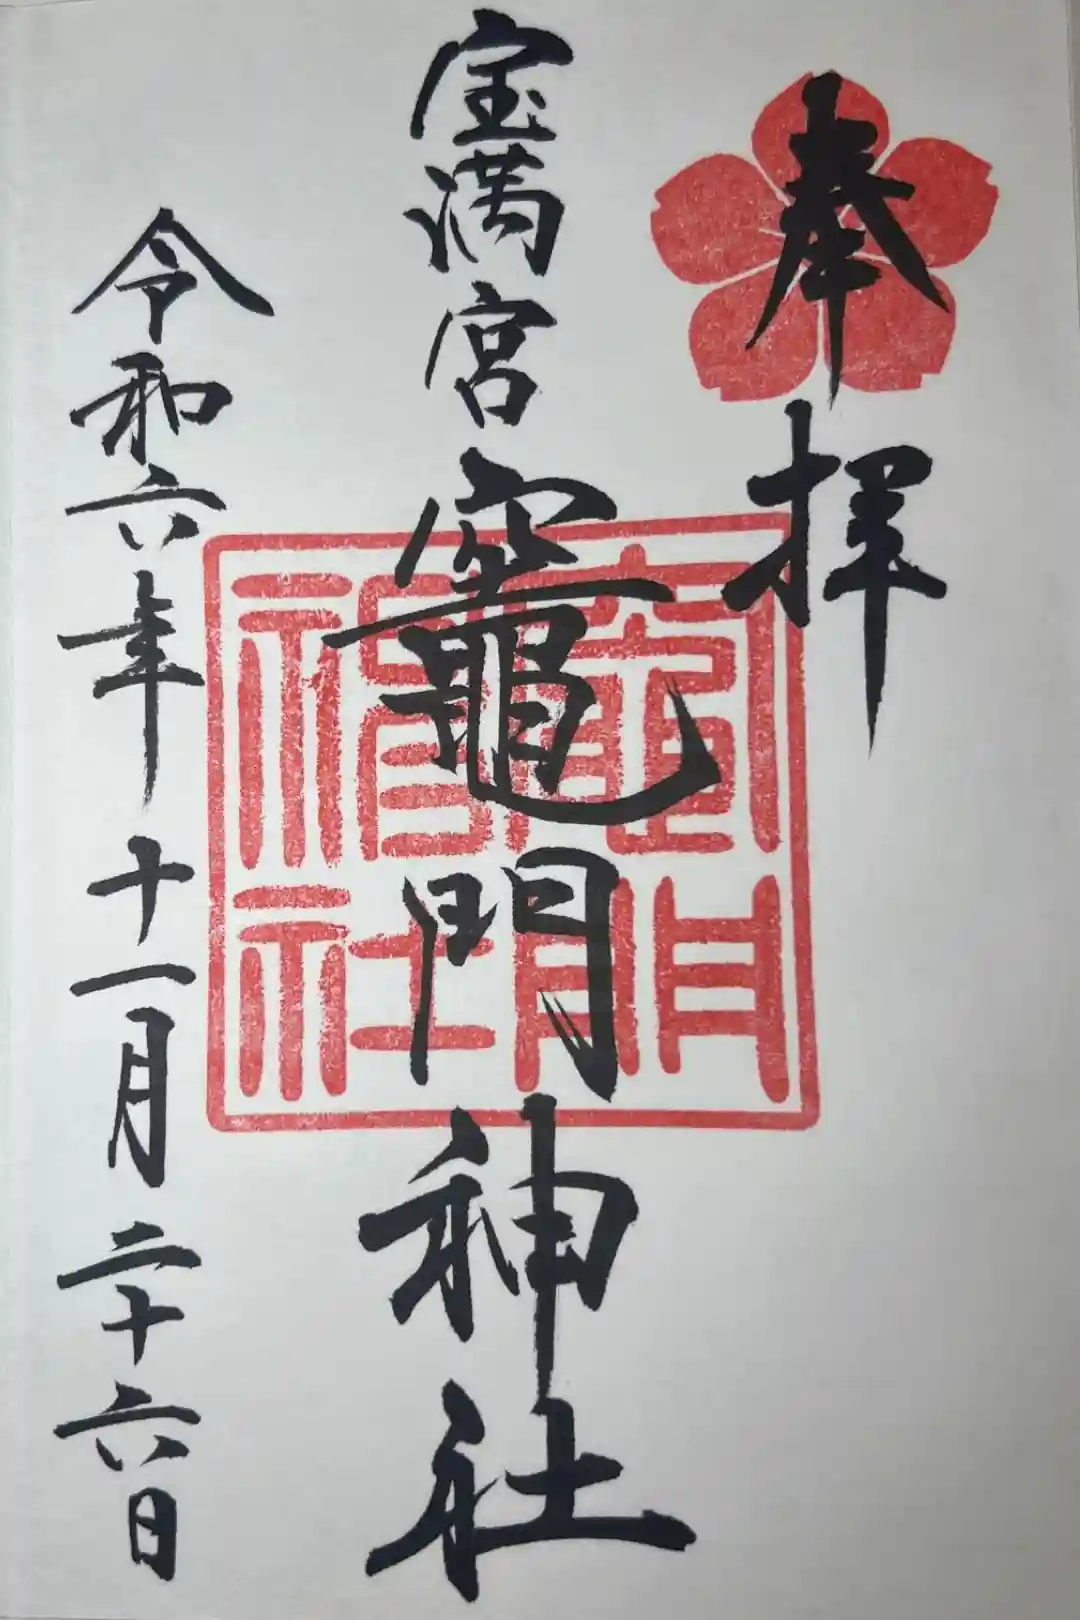 奉拝
宝満宮竈門神社
竈門神社
令和六年十一月二十六日